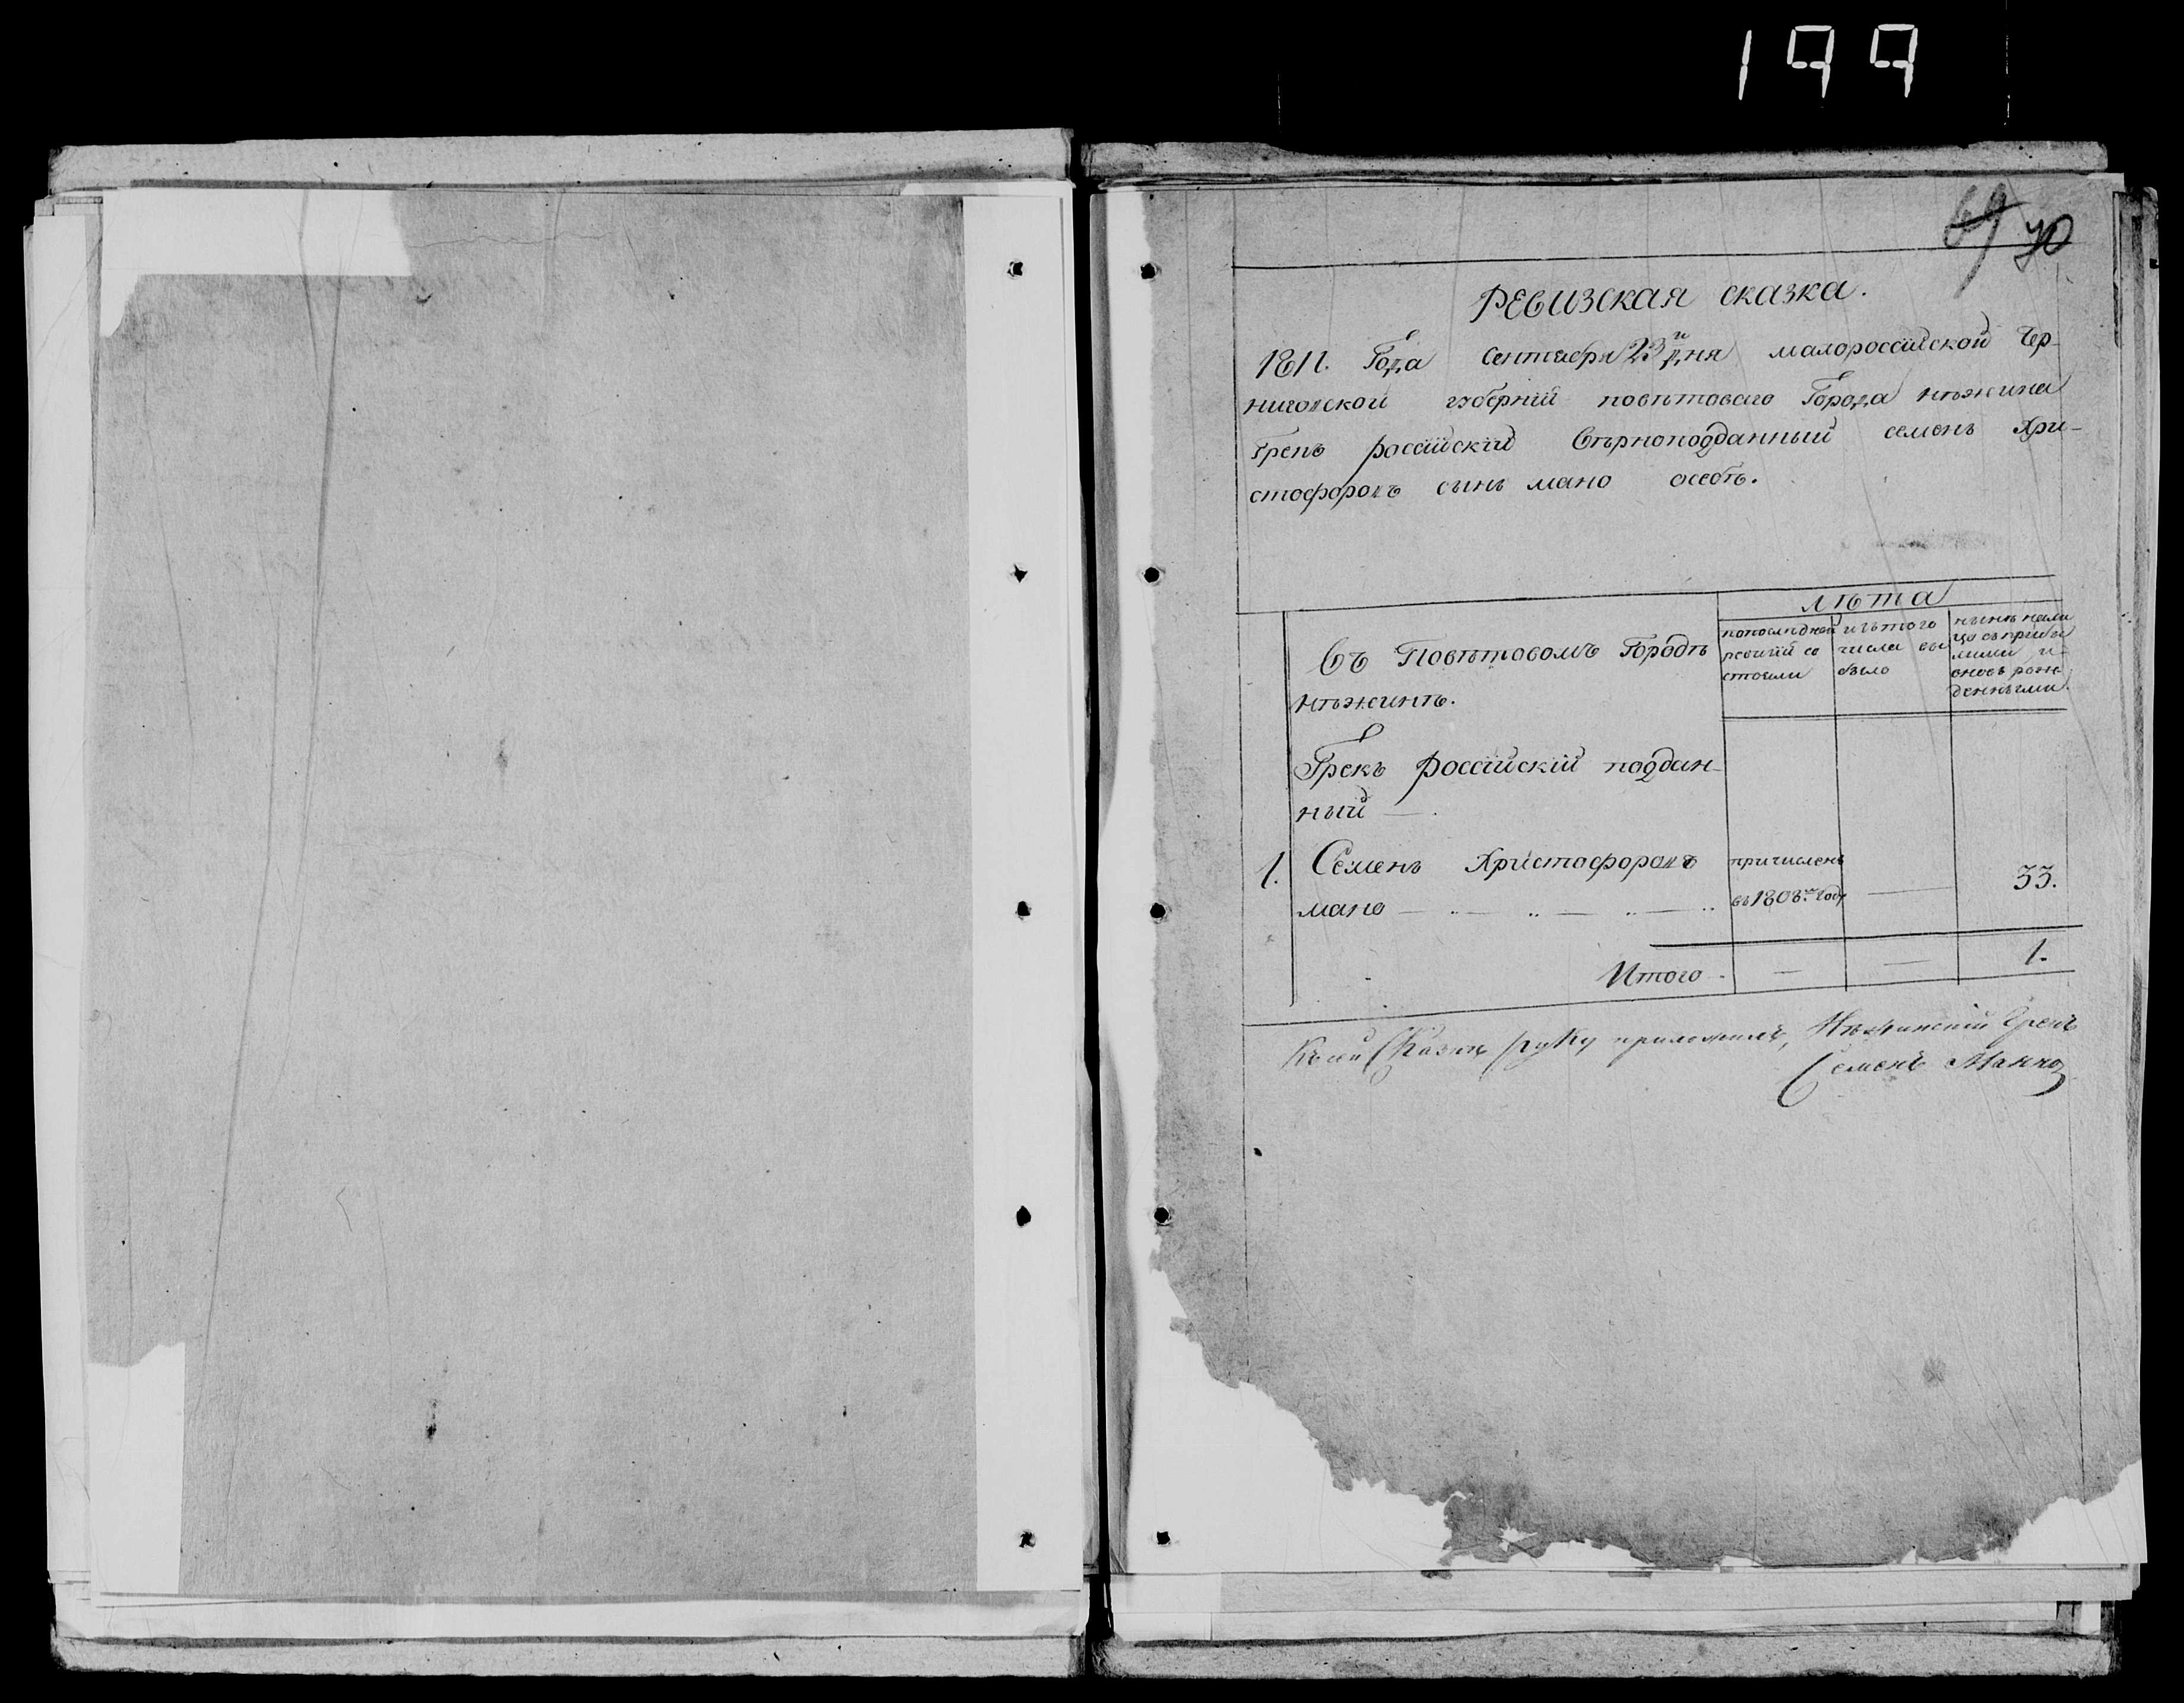 199
69 70
Ревизская сказка.
1811. Года Сентября 23го дня малороссийской Чер-
ниговской губернии поветоваго Города нѣжина
Грекъ российский вѣрноподданный семенъ Хри-
стофоровъ сынъ мано о себѣ.
лѣта
Въ Повѣтовомъ Городѣ
нѣжинѣ.
по последней
ревизии со
стояли
изъ того
числа вы
было
нынѣ нали
цо съ прибы
лыми и
вновь рож
денными.
Грекъ российский поддан-
ный — .
1. Семенъ Христофоровъ
мано
причисленъ
въ 1808м году
—
33.
Итого — — 1.
Къ сей Сказкѣ руку приложилъ, Нѣжинский Грекъ
Семенъ Манно